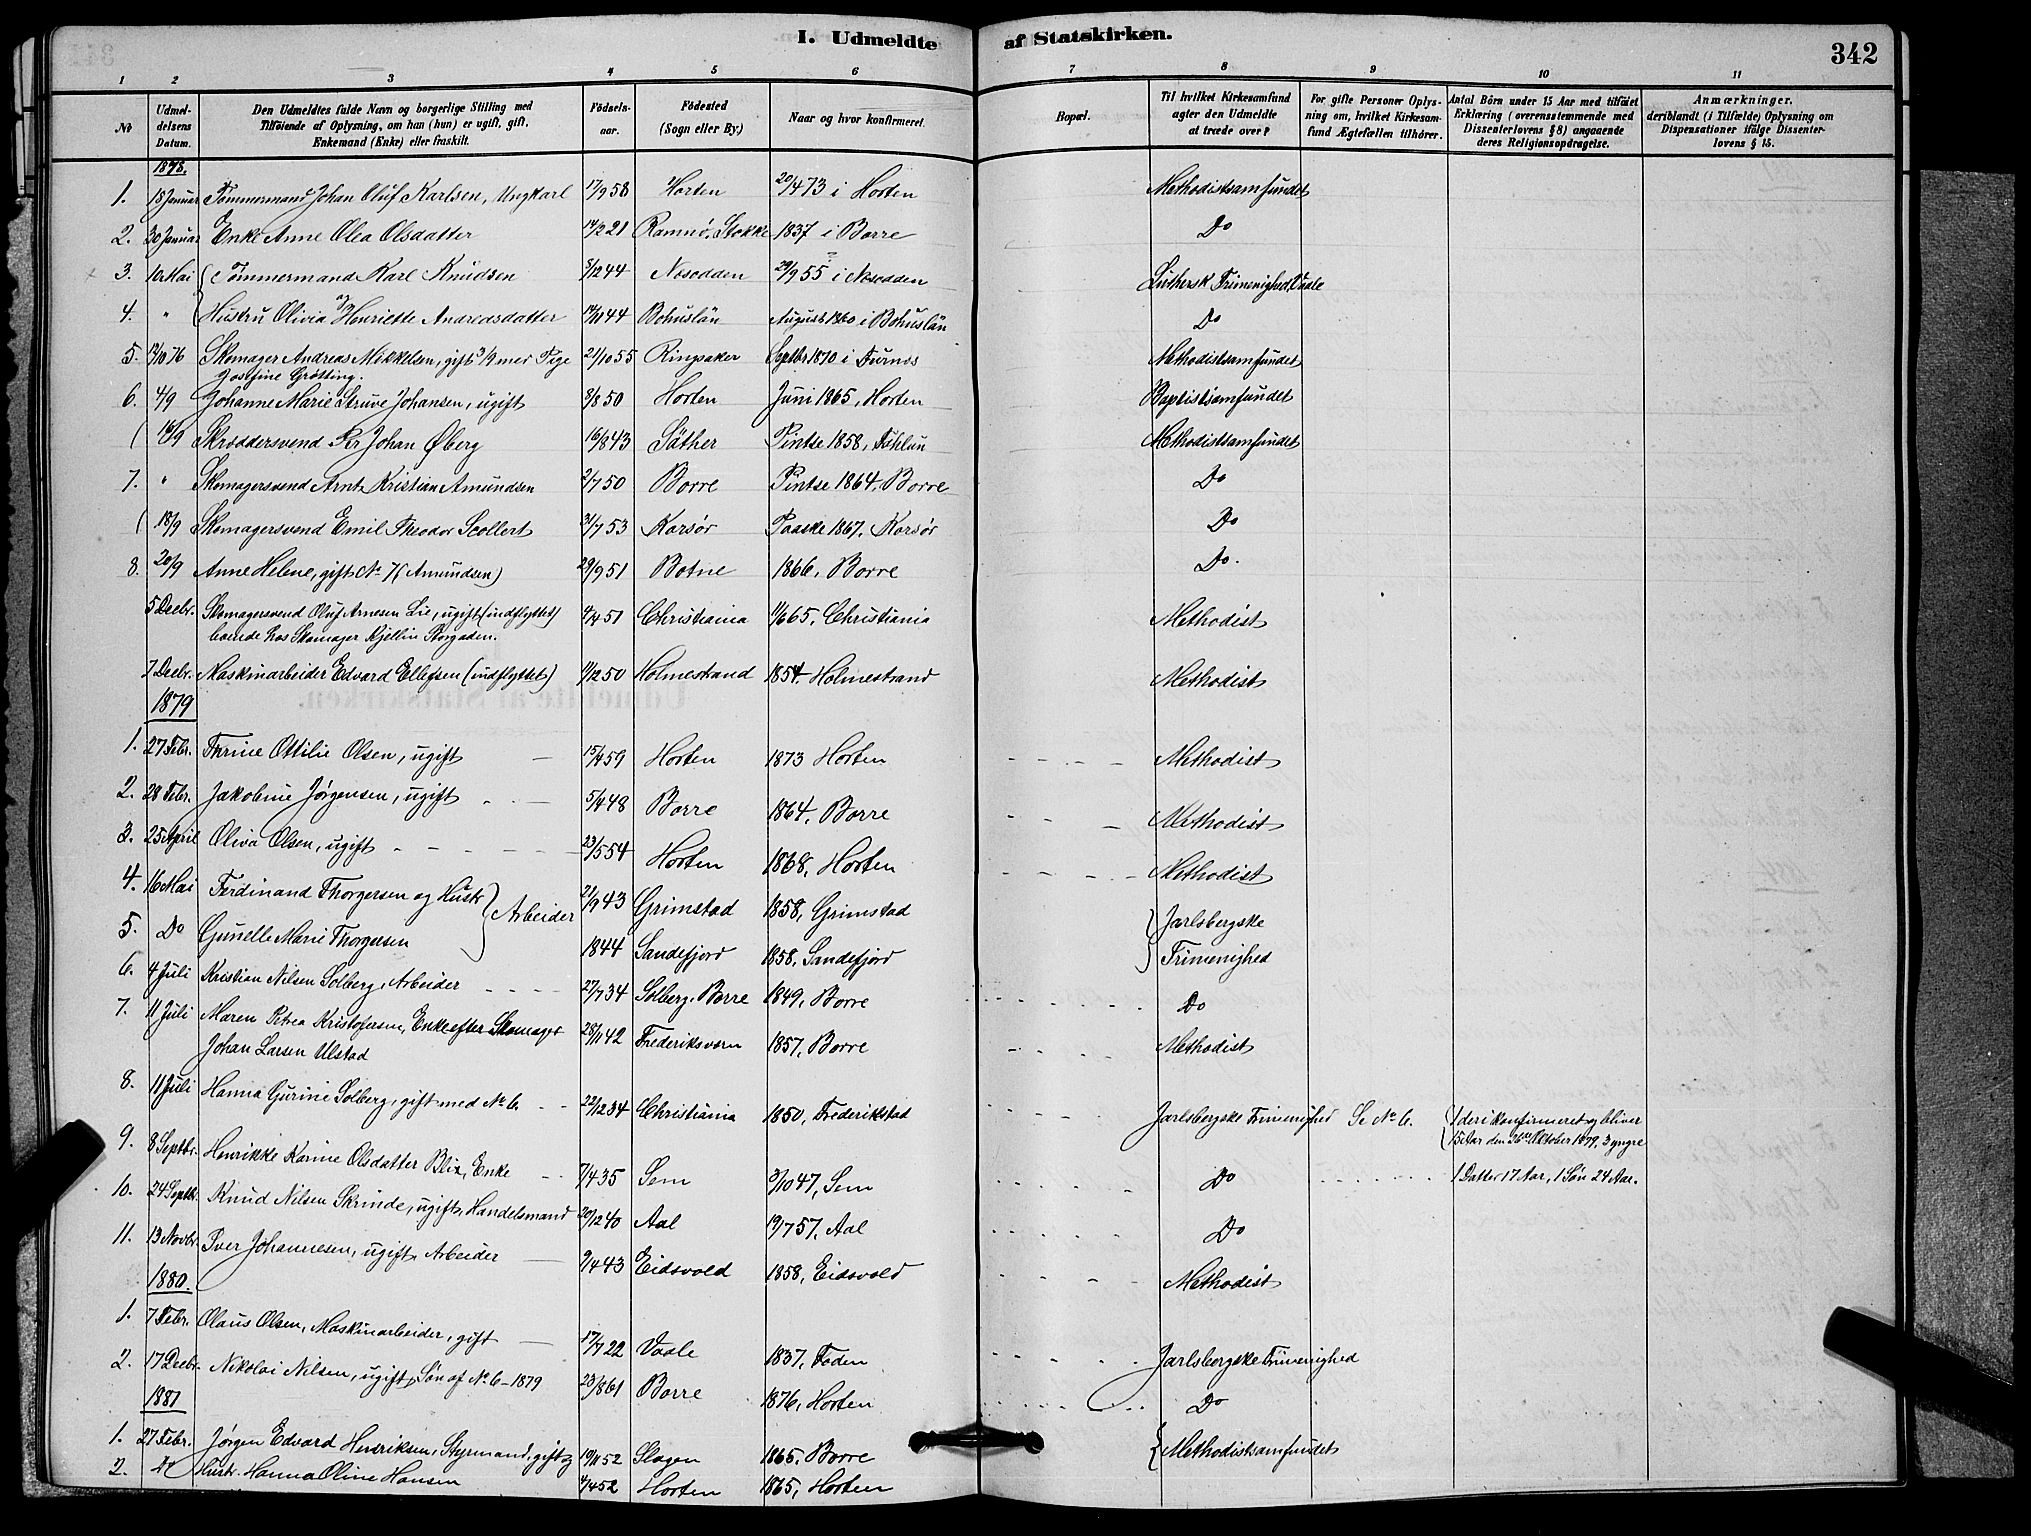 I. Udmeldte af Statskirken.
342
1 2 3 4 5 6 7 8 9 10 11
No
Udmel-
delsens
Datum.
Den Udmeldtes fulde Navn og borgerlige Stilling med
Tilføiende af Oplysning, om han (hun) er ugift, gift,
Enkemand (Enke) eller fraskilt.
Fødsels-
aar.
Fødested
(Sogn eller By.)
Naar og hvor konfirmeret.
Bopæl.
Til hvilket Kirkesamfund
agter den Udmeldte
at træde over?
For gifte Personer Oplys-
ning om, hvilket Kirkesam-
fund Ægtefællen tilhører.
Antal Børn under 15 Aar med tilføiet
Erklæring (overensstemmende med
Dissenterlovens § 8) angaaende
deres Religionsopdragelse.
Anmærkninger,
deriblandt (i Tilfælde) Oplysning om
Dispensationer ifølge Dissenter-
lovens § 15.
1878.
1. 18 Januar Tømmermand Johan Oluf Karlsen, Ungkarl 17/9 58 Horten 20/4 73 i Horten Methodistsamfundet
2. 30 Januar Enke Anne Olea Olsdatter 14/2 21 Ramnø, Stokke 1837 i Borre Do
3. 10 Mai Tømmermand Karl Knudsen 5/12 44 Nesodden 29/9 55 i Nesodden Luthersk Frimenighed, Vaale
4. " Hustru Olivia Henriette Andreasdatter 14/11 44 Bohuslän August 1860 i Bohuslän Do
5. 12/10 76 Skomager Andreas Mikkelsen, gift 3/9 med Pige 21/10 55 Ringsaker Septbr 1870 i Furnes Methodistsamfundet
Josefine Grötting.
6. 4/9 Johanne Marie Struve Johansen, ugift 8/8 50 Horten Juni 1865, Horten Baptistsamfundet
( 16/9 Skræddersvend Per Johan Øberg 16/8 43 Säther Pintse 1858, Fahlun Methodistsamfundet
7. " Skomagersvend Arnt Kristian Amundsen 2/7 50 Borre Pintse 1864, Borre Do
( 18/9 Skomagersvend Emil Theodor Scollert 31/7 53 Korsør Paaske 1867, Korsør Do
8. 20/9 Anne Helene, gift No 7 (Amundsen) 29/9 51 Botne 1866, Borre Do.
5 Decbr. Skomagersvend Oluf Arnesen Lie, ugift (indflyttet) 4/4 51 Christiania 11/6 65, Christiania Methodist
boende hos Skomager Kjellin Storgaden.
7 Decbr. Maskinarbeider Edvard Ellefsen (indflyttet) 11/12 50 Holmestrand 1854 Holmestrand Methodist
1879
1. 27 Febr. Thrine Ottilie Olsen, ugift 15/4 59 Horten 1873 Horten Methodist
2. 28 Febr. Jakobine Jørgensen, ugift 5/4 48 Borre 1864, Borre Methodist
3. 25 April Oliva Olsen, ugift 23/5 54 Horten 1868, Horten Methodist
4. 16 Mai Ferdinand Thorgersen og Hustr Arbeider 21/9 43 Grimstad 1858, Grimstad Jarlsbergske
5. Do Gunelle Marie Thorgersen 1844 Sandefjord 1858, Sandefjord Frimenighed
6. 4 Juli Kristian Nilsen Solberg, Arbeider 27/7 34 Solberg, Borre 1849, Borre Do
7. 11 Juli Maren Petrea Kristofersen, Enke efter Skomager 28/11 42 Frederiksværn 1857, Borre Methodist
Johan Larsen Ulstad
8. 11 Juli Hanna Gurine Solberg, gift med No 6. 22/12 34 Christiania 1850, Frederikstad Jarlsbergske Frimenighed Se No 6. 1 der i konfirmeret og bliver
15 Aar den 26de Oktober 1879, 3 yngre
9. 8 Septbr. Henrikke Karine Olsdatter Blix, Enke 7/4 35 Sem 3/10 47, Sem Do 1 Datter 17 Aar, 1 Søn 24 Aar.
10. 24 Septbr. Knud Nilsen Skrinde, ugift, Handelsmand 20/12 40 Aal 19/7 57, Aal Do
11. 13 Novbr. Iver Johannesen, ugift, Arbeider 9/4 43 Eidsvold 1858, Eidsvold Methodist
1880.
1. 7 Febr. Olaus Olsen, Maskinarbeider, gift 17/7 22 Vaale 1837, Foden Jarlsbergske Frimenighed
2. 17 Decbr. Nikolai Nilsen, ugift, Søn af No 6-1879 23/8 61 Borre 1876, Horten Do
1881
1. 27 Febr. Jørgen Edvard Henriksen, Styrmand, gift og 19/11 52 Slagen 1865, Borre Methodistsamfundet
2. Do Hustr. Hanna Oline Hansen 4/4 52 Horten 1865, Horten